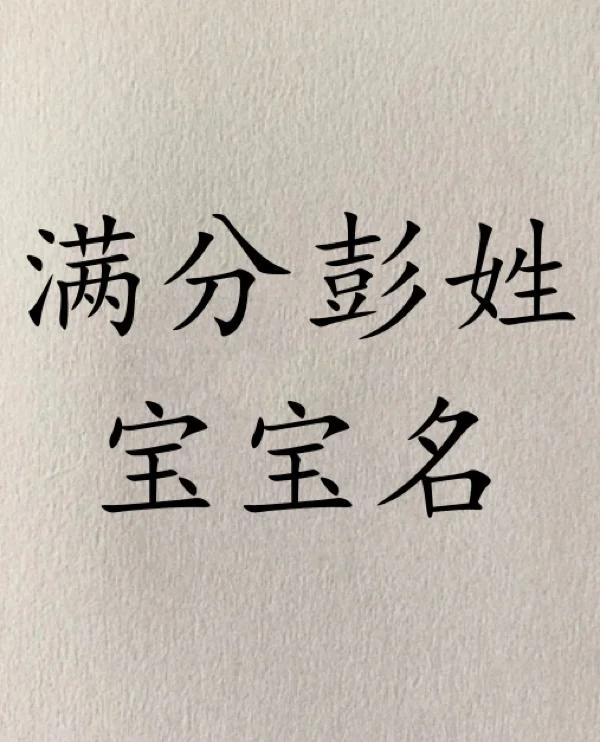 满分彭姓
宝宝名